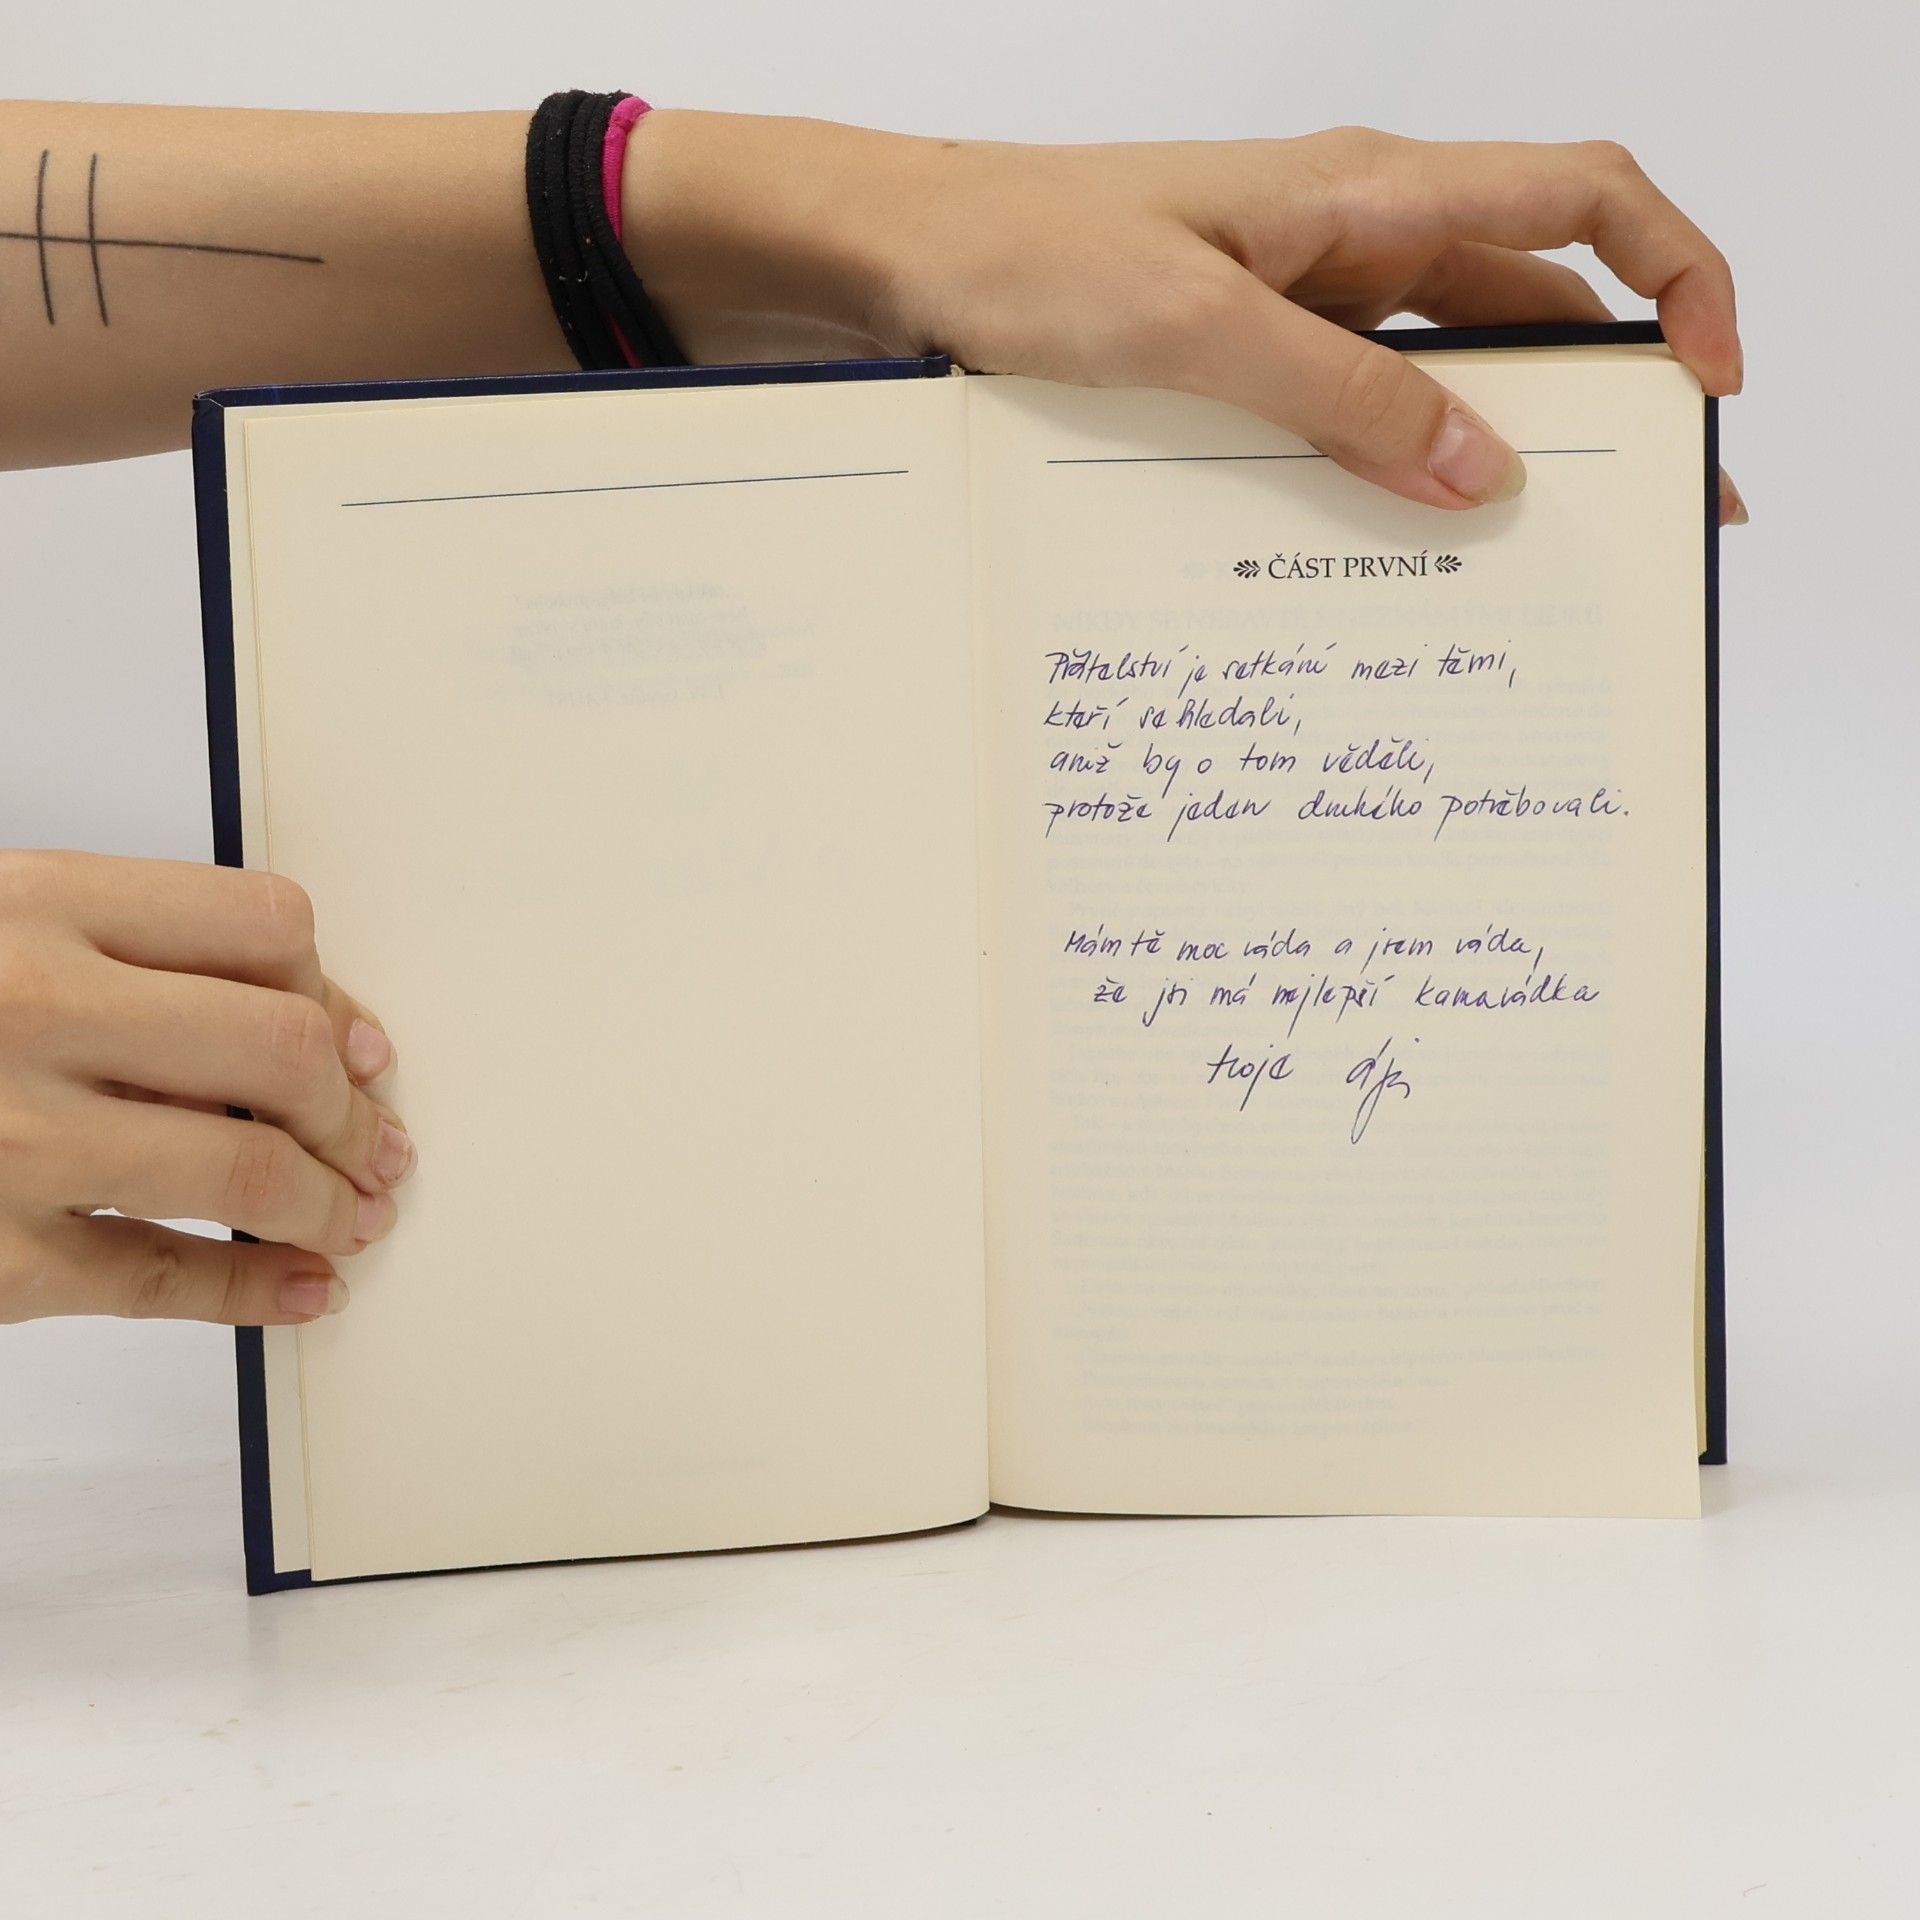 ČÁST PRVNÍ
Přátelství je setkání mezi těmi,
kteří se hledali,
aniž by o tom věděli,
protože jeden druhého potřebovali.
Mám tě moc ráda a jsem ráda,
že jsi má nejlepší kamarádka
tvoje ája